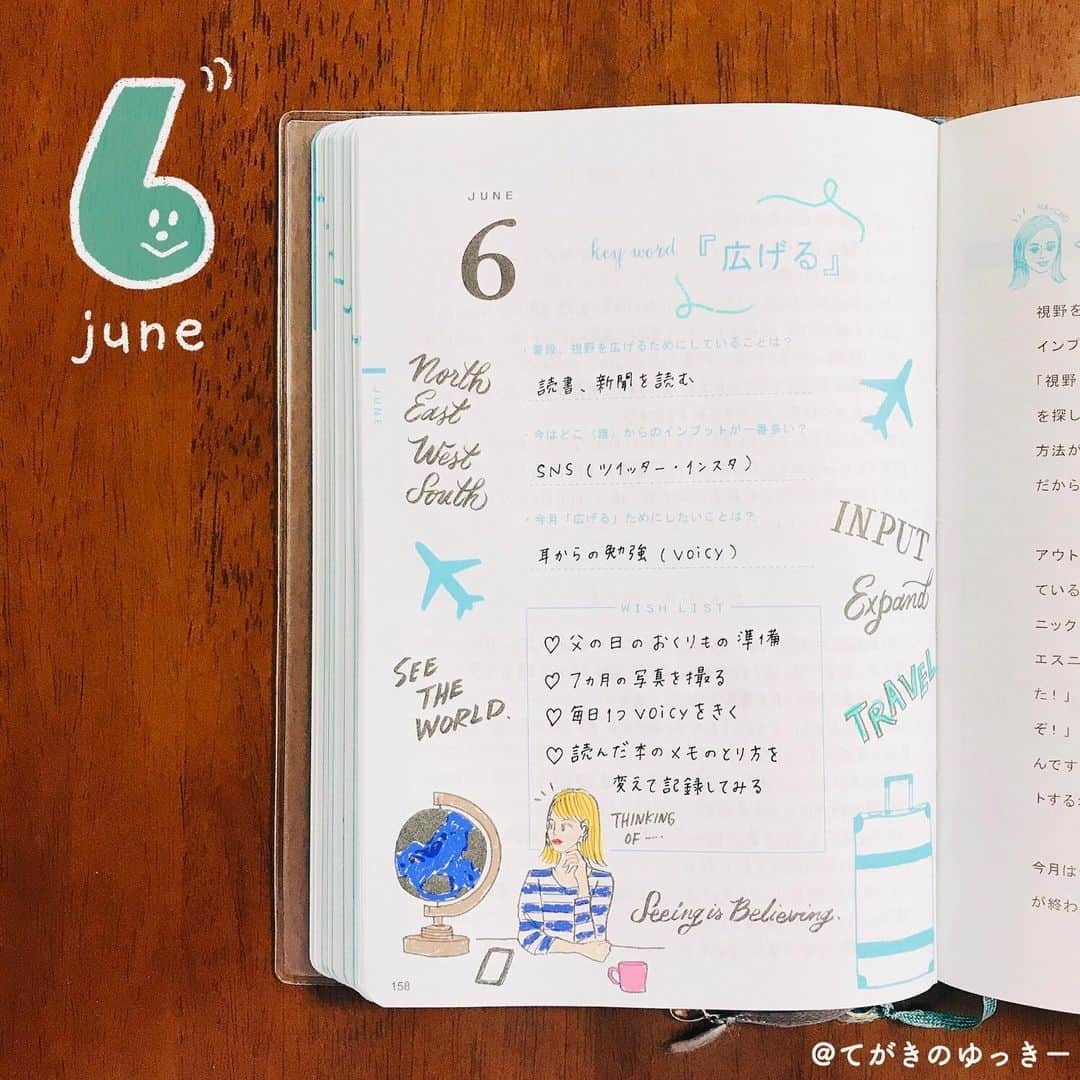 june
JUNE
6
key word 『広げる』
JUNE
North
East
West
South
・普段、視野を広げるためにしていることは？
読書、新聞を読む
・今はどこ（誰）からのインプットが一番多い？
SNS (ツイッター・インスタ)
・今月「広げる」ためにしたいことは？
耳からの勉強 (voicy)
INPUT
Expand
TRAVEL
SEE
THE
WORLD.
WISH LIST
♡ 父の日のおくりもの準備
♡ 7ヵ月の写真を撮る
♡ 毎日1つvoicyをきく
♡ 読んだ本のメモのとり方を
変えて記録してみる
THINKING
OF .....
Seeing is Believing.
158
視野を
インプ
「視野
を探し
方法が
だから
アウト
ている
ニック
エスニ
た！」
ぞ！」
んです
トする
今月は
が終わ
@てがきのゆっきー